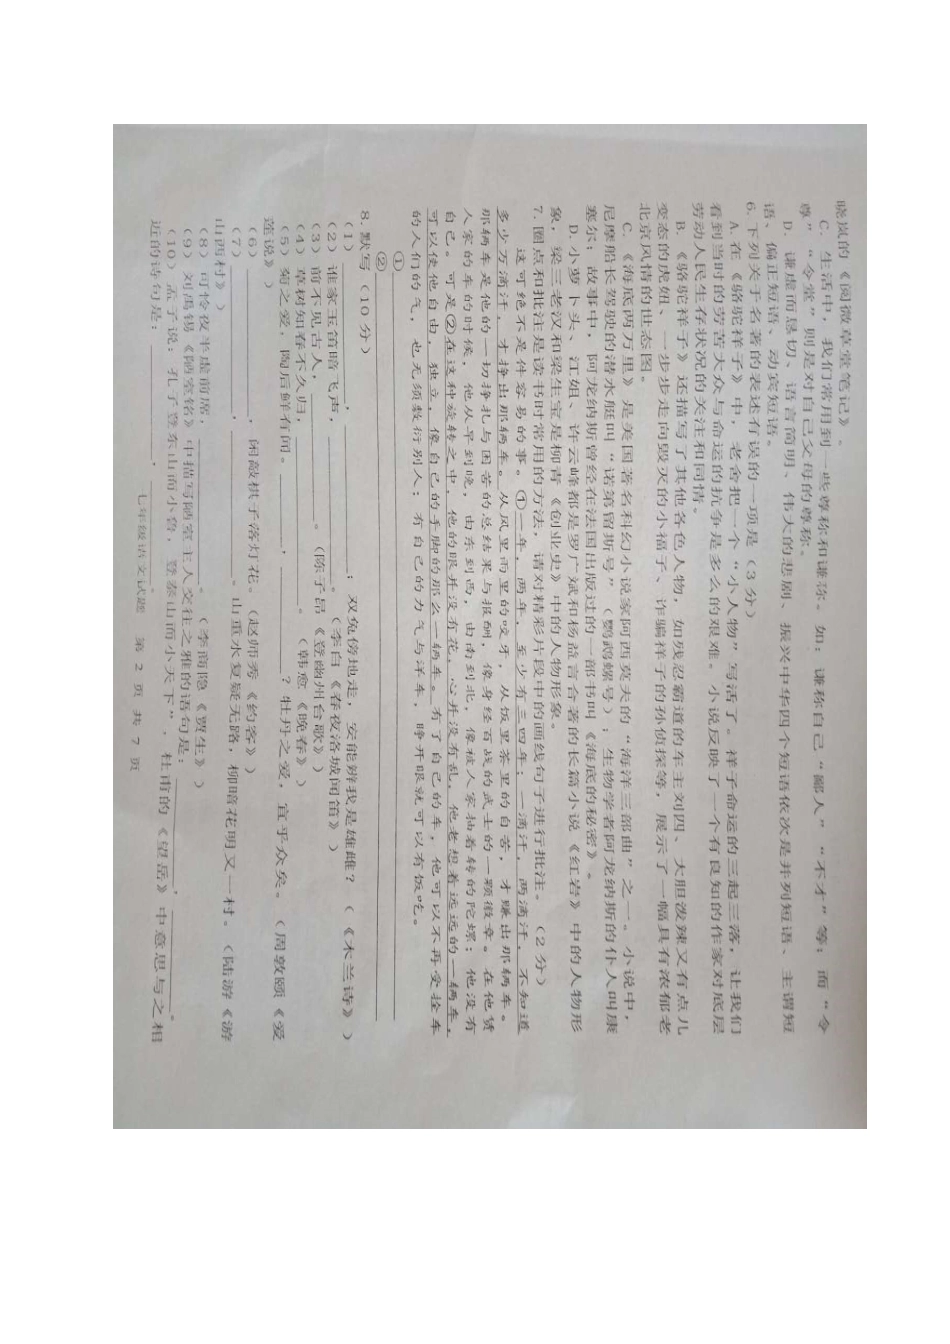 晓岚的《阅微草堂笔记》。
C. 生活中，我们常用到一些尊称和谦称。如：谦称自己“鄙人”“不才”等；而“令
尊”“令堂”则是对自己父母的尊称。
D. 谦虚而恳切、语言简明、伟大的悲剧、振兴中华四个短语依次是并列短语、主谓短
语、偏正短语、动宾短语。
6. 下列关于名著的表述有误的一项是（3 分）
A. 在《骆驼祥子》中，老舍把一个“小人物”写活了。祥子命运的三起三落，让我们
看到当时的劳苦大众与命运的抗争是多么的艰难。小说反映了一个有良知的作家对底层
劳动人民生存状况的关注和同情。
B. 《骆驼祥子》还描写了其他各色人物，如残忍霸道的车主刘四、大胆泼辣又有点儿
变态的虎妞、一步步走向毁灭的小福子、诈骗祥子的孙侦探等，展示了一幅具有浓郁老
北京风情的世态图。
C. 《海底两万里》是美国著名科幻小说家阿西莫夫的“海洋三部曲”之一。小说中，
尼摩船长驾驶的潜水艇叫“诺第留斯号”（鹦鹉螺号）；生物学者阿龙纳斯的仆人叫康
塞尔；故事中，阿龙纳斯曾经在法国出版过的一部书叫《海底的秘密》。
D. 小萝卜头、江姐、许云峰都是罗广斌和杨益言合著的长篇小说《红岩》中的人物形
象，梁三老汉和梁生宝是柳青《创业史》中的人物形象。
7. 圈点和批注是读书时常用的方法，请对精彩片段中的画线句子进行批注。（2 分）
这可绝不是件容易的事。①一年，两年，至少有三四年；一滴汗，两滴汗，不知道
多少万滴汗，才挣出那辆车。从风里雨里的咬牙，从饭里茶里的自苦，才赚出那辆车。
那辆车是他的一切挣扎与困苦的总结果与报酬，像身经百战的武士的一颗徽章。在他赁
人家的车的时候，他从早到晚，由东到西，由南到北，像被人家抽着转的陀螺；他没有
自己。可是②在这种旋转之中，他的眼并没有花，心并没有乱，他老想着远远的一辆车，
可以使他自由，独立，像自己的手脚的那么一辆车。有了自己的车，他可以不再受拴车
的人们的气，也无须敷衍别人；有自己的力气与洋车，睁开眼就可以有饭吃。
①
②
8. 默写（10 分）
（1），；双兔傍地走，安能辨我是雄雌？（《木兰诗》）
（2）谁家玉笛暗飞声，。（李白《春夜洛城闻笛》）
（3）前不见古人，。（陈子昂《登幽州台歌》）
（4）草树知春不久归，。（韩愈《晚春》）
（5）菊之爱，陶后鲜有闻。，？牡丹之爱，宜乎众矣。（周敦颐《爱
莲说》）
（6），闲敲棋子落灯花。（赵师秀《约客》）
（7），。山重水复疑无路，柳暗花明又一村。（陆游《游
山西村》）
（8）可怜夜半虚前席，。（李商隐《贾生》）
（9）刘禹锡《陋室铭》中描写陋室主人交往之雅的语句是：，。
（10）孟子说：孔子登东山而小鲁，登泰山而小天下”，杜甫的《望岳》中意思与之相
近的诗句是：，。
七年级语文试题 第 2 页 共 7 页